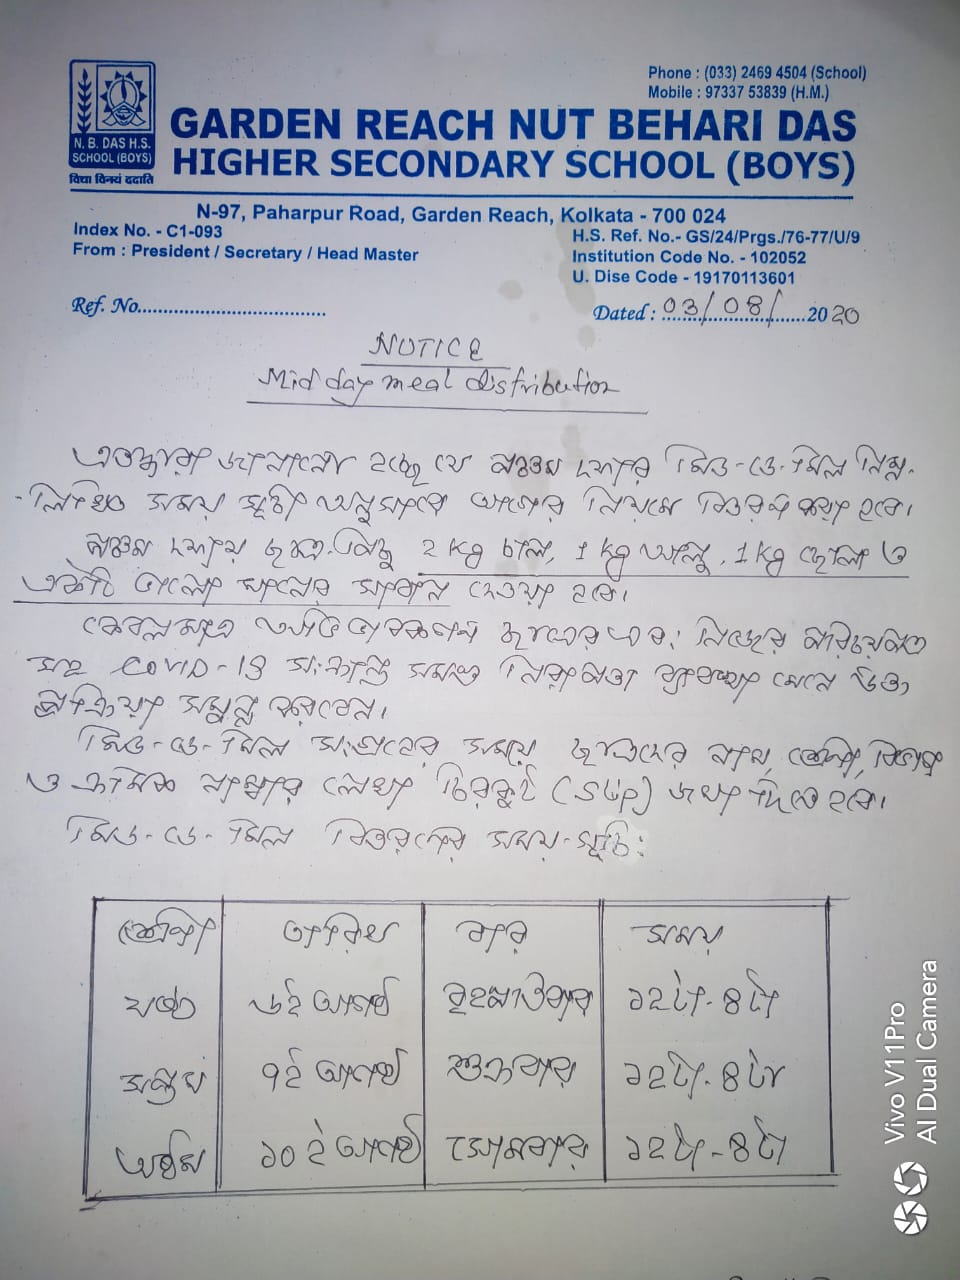 Phone : (033) 2469 4504 (School)
Mobile : 97337 53839 (H.M.)
N. B. DAS H.S.
SCHOOL (BOYS)
विद्या विनयं ददाति
GARDEN REACH NUT BEHARI DAS
HIGHER SECONDARY SCHOOL (BOYS)
N-97, Paharpur Road, Garden Reach, Kolkata - 700 024
Index No. - C1-093
H.S. Ref. No.- GS/24/Prgs./76-77/U/9
From : President / Secretary / Head Master
Institution Code No. - 102052
U. Dise Code - 19170113601
Ref. No.
Dated : 03/08/2020
NOTICE
Mid day meal distribution
এতদ্বারা জানানো হচ্ছে যে পঞ্চম দফার মিড-ডে-মিল নিম্ন-
-লিখিত সময় সূচী অনুসারে আগের নিয়মে বিতরণ করা হবে।
পঞ্চম দফায় ছাত্র পিছু 2 kg চাল, 1 kg আলু, 1 kg ছোলা ও
একটি ভালো মানের সাবান দেওয়া হবে।
কেবলমাত্র অভিভাবকগণ ছাত্রের নিজের পরিচয়পত্র
সহ COVID-19 সংক্রান্ত সমস্ত নিরাপত্তা ব্যবস্থা মেনে উক্ত
প্রক্রিয়া সম্পন্ন করবেন।
মিড-ডে-মিল সংগ্রহের সময়ে ছাত্রদের নাম, শ্রেণী, বিভাগ
ও ক্রমিক নাম্বার লেখা চিরকুট (Slip) জমা দিতে হবে।
মিড-ডে-মিল বিতরণের সময়-সূচি:
শ্রেণী তারিখ বার সময়
ষষ্ঠ ৬ই আগষ্ট বৃহস্পতিবার ১২টা-৪টা
সপ্তম ৭ই আগষ্ট শুক্রবার ১২টা-৪টা
অষ্টম ১০ই আগষ্ট সোমবার ১২টা-৪টা
Vivo V11Pro
AI Dual Camera